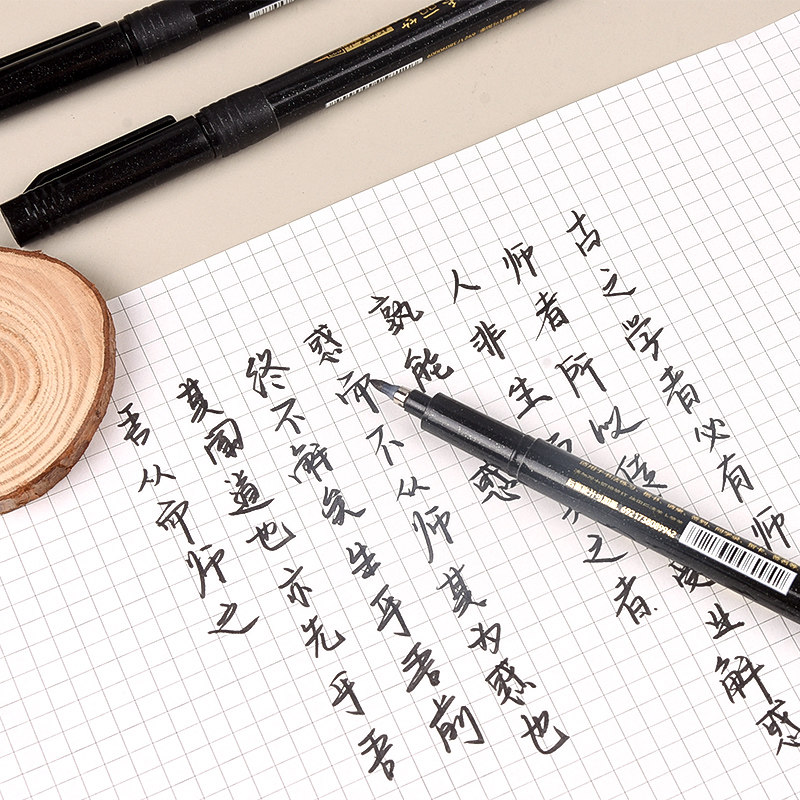 古之学者必有师
师者所以传受业解惑
人非生之者
孰能惑
惑而不从师其为惑也
终不解矣生乎吾前
其闻道也亦先乎吾
吾从而师之